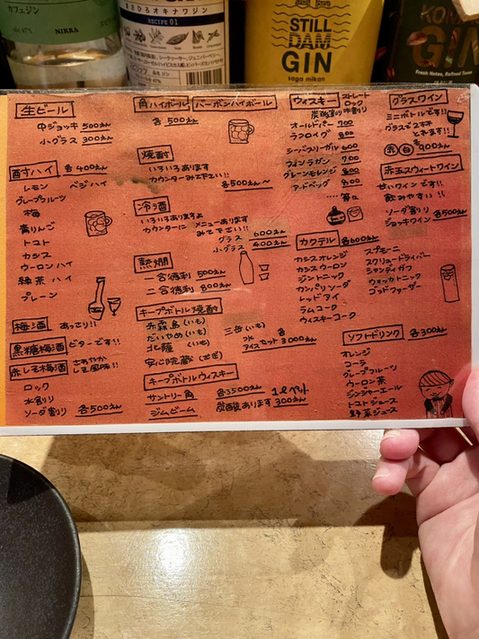 カフェジン
47%
NIKKA
まさひろオキナワジン
RECIPE 01
STILL
DAM
GIN
GIN
Fresh Notes, Refined Tones
生ビール
中ジョッキ 500えん
小グラス 300えん
酎ハイ 各400えん
レモン
ベジハイ
グレープルーツ
梅
青りんご
トマト
カシス
ウーロンハイ
緑茶ハイ
プレーン
梅酒 あっさり!!
黒糖梅酒 ビターです!!
赤レモ梅酒 さわやかレモ風味!!
ロック
水割り
ソーダ割り 各500えん
角ハイボール バーボンハイボール
各500えん
焼酎
いろいろあります
カウンターみて下さい!!
各500えん〜
冷酒
いろいろありますよ
カウンターに メニューあります
みて下さい!!
グラス 600えん
小グラス 400えん
熱燗
一合徳利 500えん
二合徳利 800えん
キープボトル焼酎
赤霧島(いも)
だいやめ(いも)
三岳(いも)
北薩 (いも)
安心院蔵(むぎ)
氷
アイスセット 各3000えん
キープボトルウィスキー
サントリー角
ジムビーム
各3500えん
1ℓペット
炭酸あります 300えん
ウィスキー
ストレート
ロック
炭酸割り 水割り
オールドパー 700
ラフロイグ 800
シーバスリーガル 600
ラインラガン 700
グレンモレンジ 800
アードベッグ 800
カクテル 各600えん
カシスオレンジ
カシスウーロン
ジントニック
カンパリソーダ
レッドアイ
ラムコーク
ウィスキーコーク
スプモーニ
スクリュードライバー
シャンディガフ
ウォッカトニック
ゴッドファーザー
グラスワイン
ミニボトルです!!
グラス2コ
とれます!!
赤 白 900えん
赤玉スウィートワイン
甘いワインです!!
飲みやすい
ソーダ割り
ジョッキワイン 各500えん
ソフトドリンク 各300えん
オレンジ
コーラ
グレープフルーツ
ウーロン茶
ジンジャーエール
トマトジュース
野菜ジュース